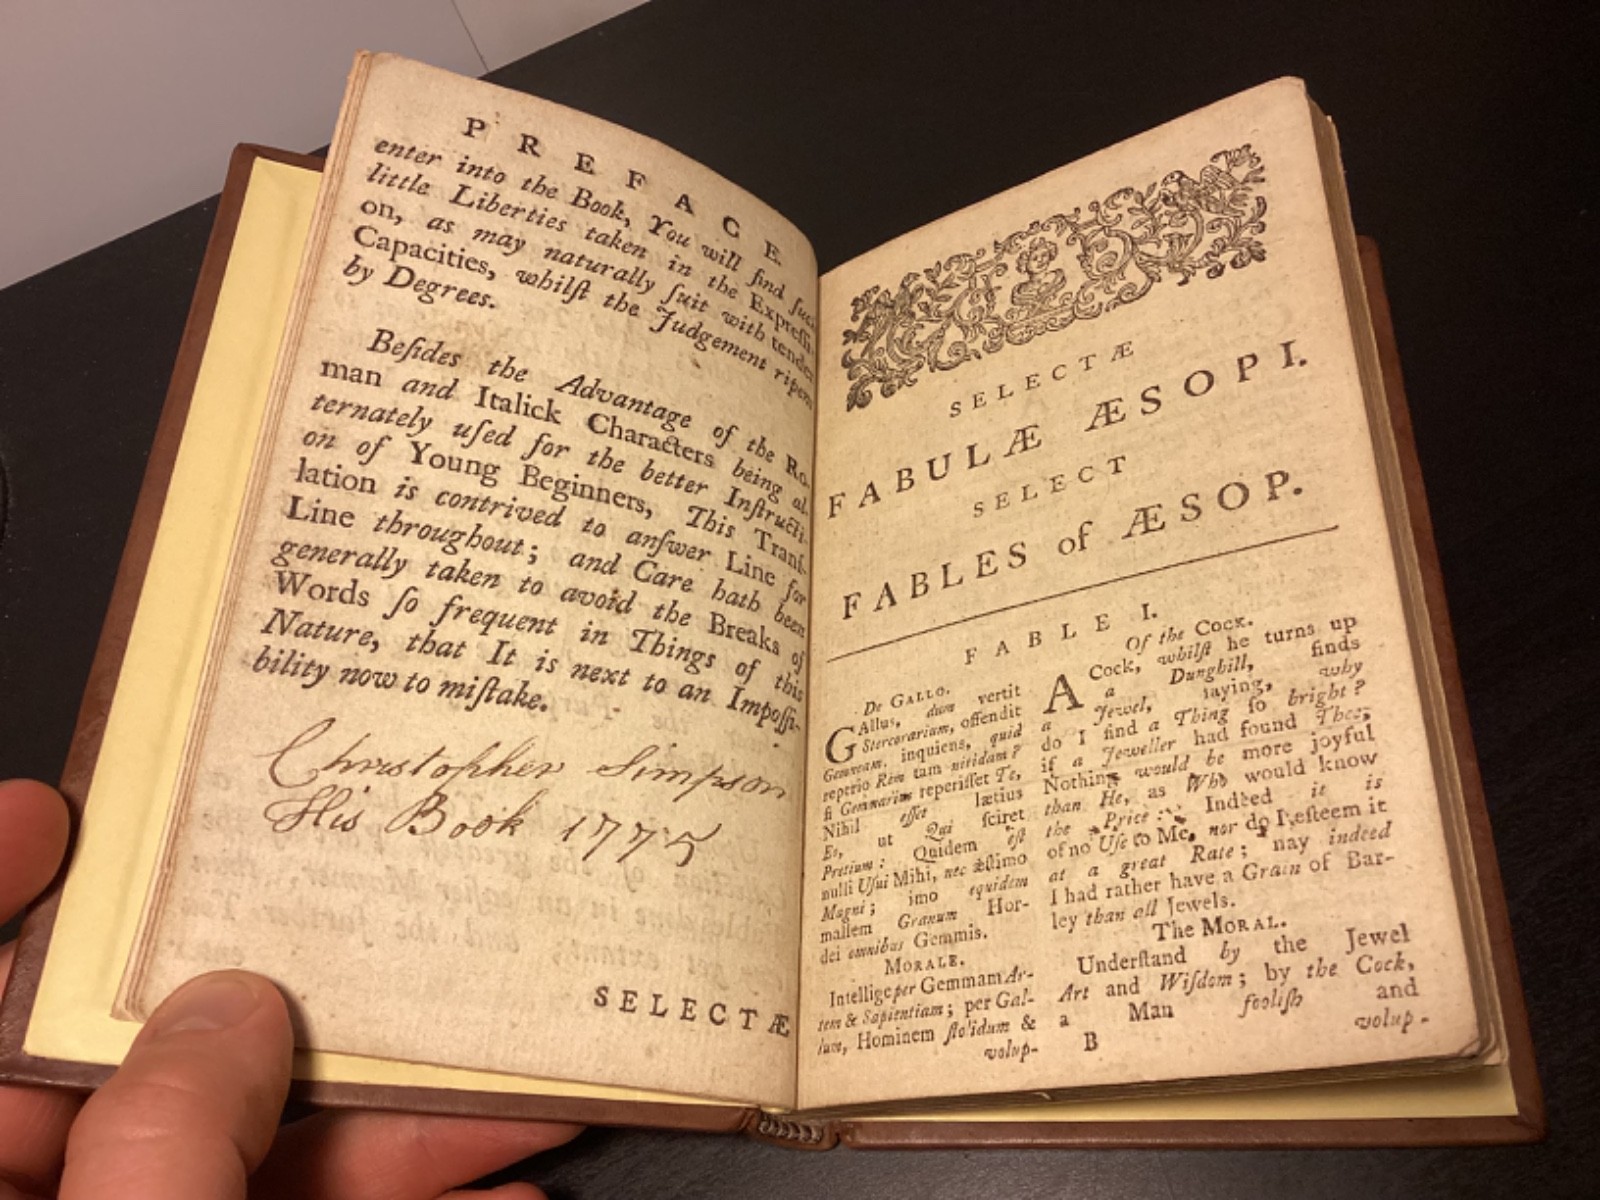 PREFACE.
enter into the Book, You will find ſuch
little Liberties taken in the Expreſſi-
on, as may naturally ſuit with tender
Capacities, whilſt the Judgement ripens
by Degrees.
Beſides the Advantage of the Ro-
man and Italick Characters being al-
ternately uſed for the better Inſtructi-
on of Young Beginners, This Tranſ-
lation is contrived to anſwer Line for
Line throughout; and Care hath been
generally taken to avoid the Breaks of
Words ſo frequent in Things of this
Nature, that It is next to an Impoſſi-
bility now to miſtake.
Christopher Simpson
His Book 1775
SELECTÆ
SELECTÆ
FABULÆ ÆSOPI.
SELECT
FABLES of ÆSOP.
FABLE I.
De GALLO.
GAllus, dum vertit
Stercorarium, offendit
Gemmam, inquiens, quid
reperio Rem tam nitidam?
ſi Gemmarius reperiſſet Te,
Nihil eſſet lætius
Eo, ut Qui ſciret
Pretium: Quidem eſt
nulli Uſui Mihi, nec æſtimo
Magni; imo equidem
mallem Granum Hor-
dei omnibus Gemmis.
MORALE.
Intellige per Gemmam Ar-
tem & Sapientiam; per Gal-
lum, Hominem ſtolidum &
volup-
Of the COCK.
A Cock, whilſt he turns up
a Dunghill, finds
a Jewel, ſaying, why
do I find a Thing ſo bright?
if a Jeweller had found Thee,
Nothing would be more joyful
than He, as Who would know
the Price: Indeed it is
of no Uſe to Me, nor do I eſteem it
at a great Rate; nay indeed
I had rather have a Grain of Bar-
ley than all Jewels.
The MORAL.
Underſtand by the Jewel
Art and Wiſdom; by the Cock,
a Man fooliſh and
B volup-